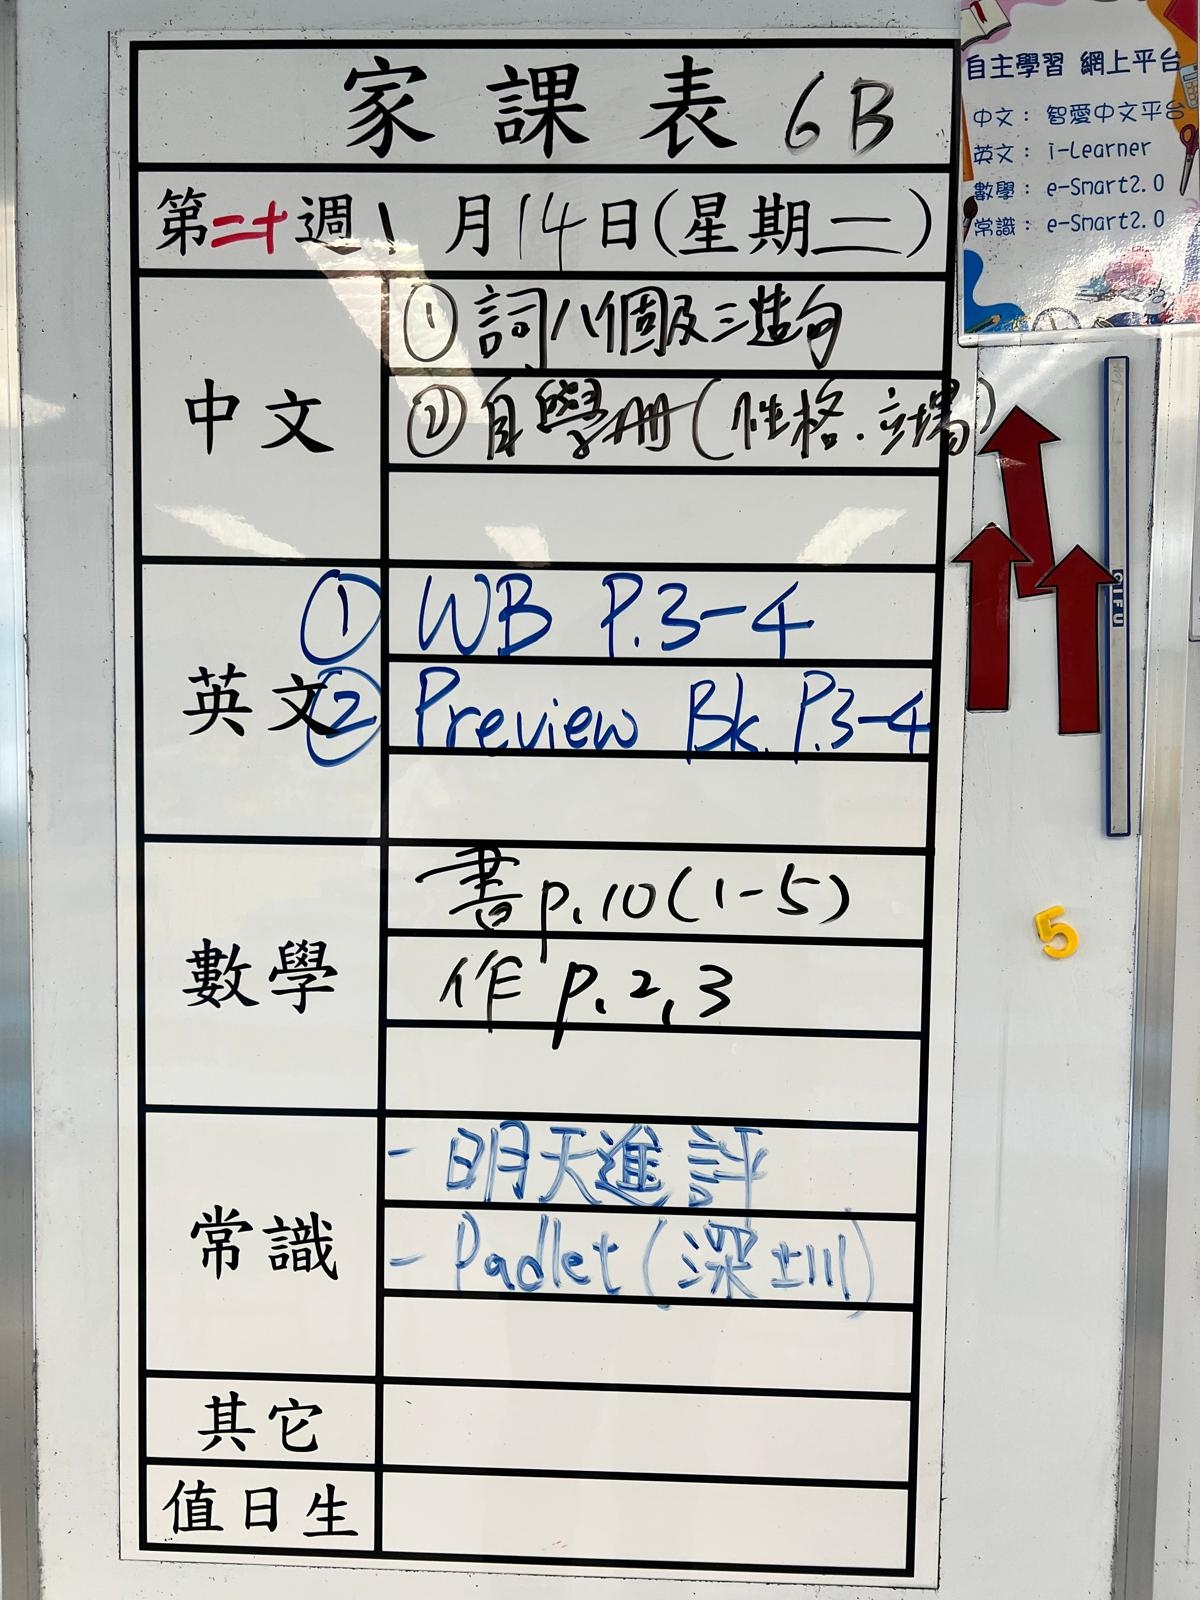 家課表 6B
第二十週 1月14日(星期二)
中文
① 詞八個及三造句
② 自學冊(性格.立場)
英文
① WB P.3-4
② Preview Bk. P.3-4
數學
書 p.10(1-5)
作 p.2,3
常識
- 明天進評
- Padlet(深圳)
其它
值日生
自主學習 網上平台
中文： 智愛中文平台
英文： i-Learner
數學： e-Smart2.0
常識： e-Smart2.0
QIFU
5